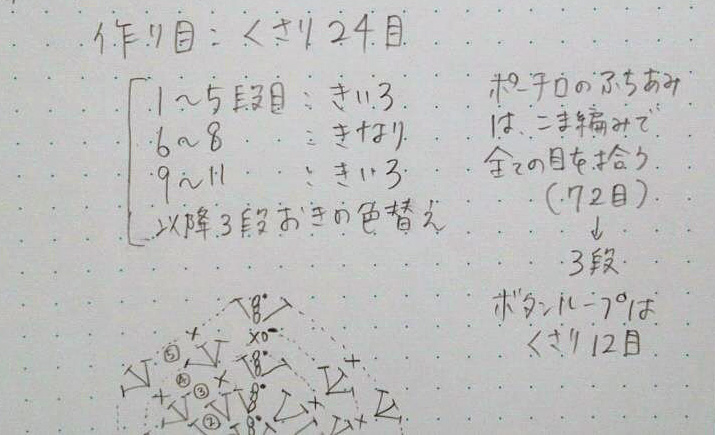 作り目：くさり24目
1〜5段目：きいろ
6〜8　：きなり
9〜11　：きいろ
以降3段おきの色替え
ポーチ口のふちあみ
は、こま編みで
全ての目を拾う
(72目)
↓
3段
ボタンループは
くさり12目
⑤
④③
②